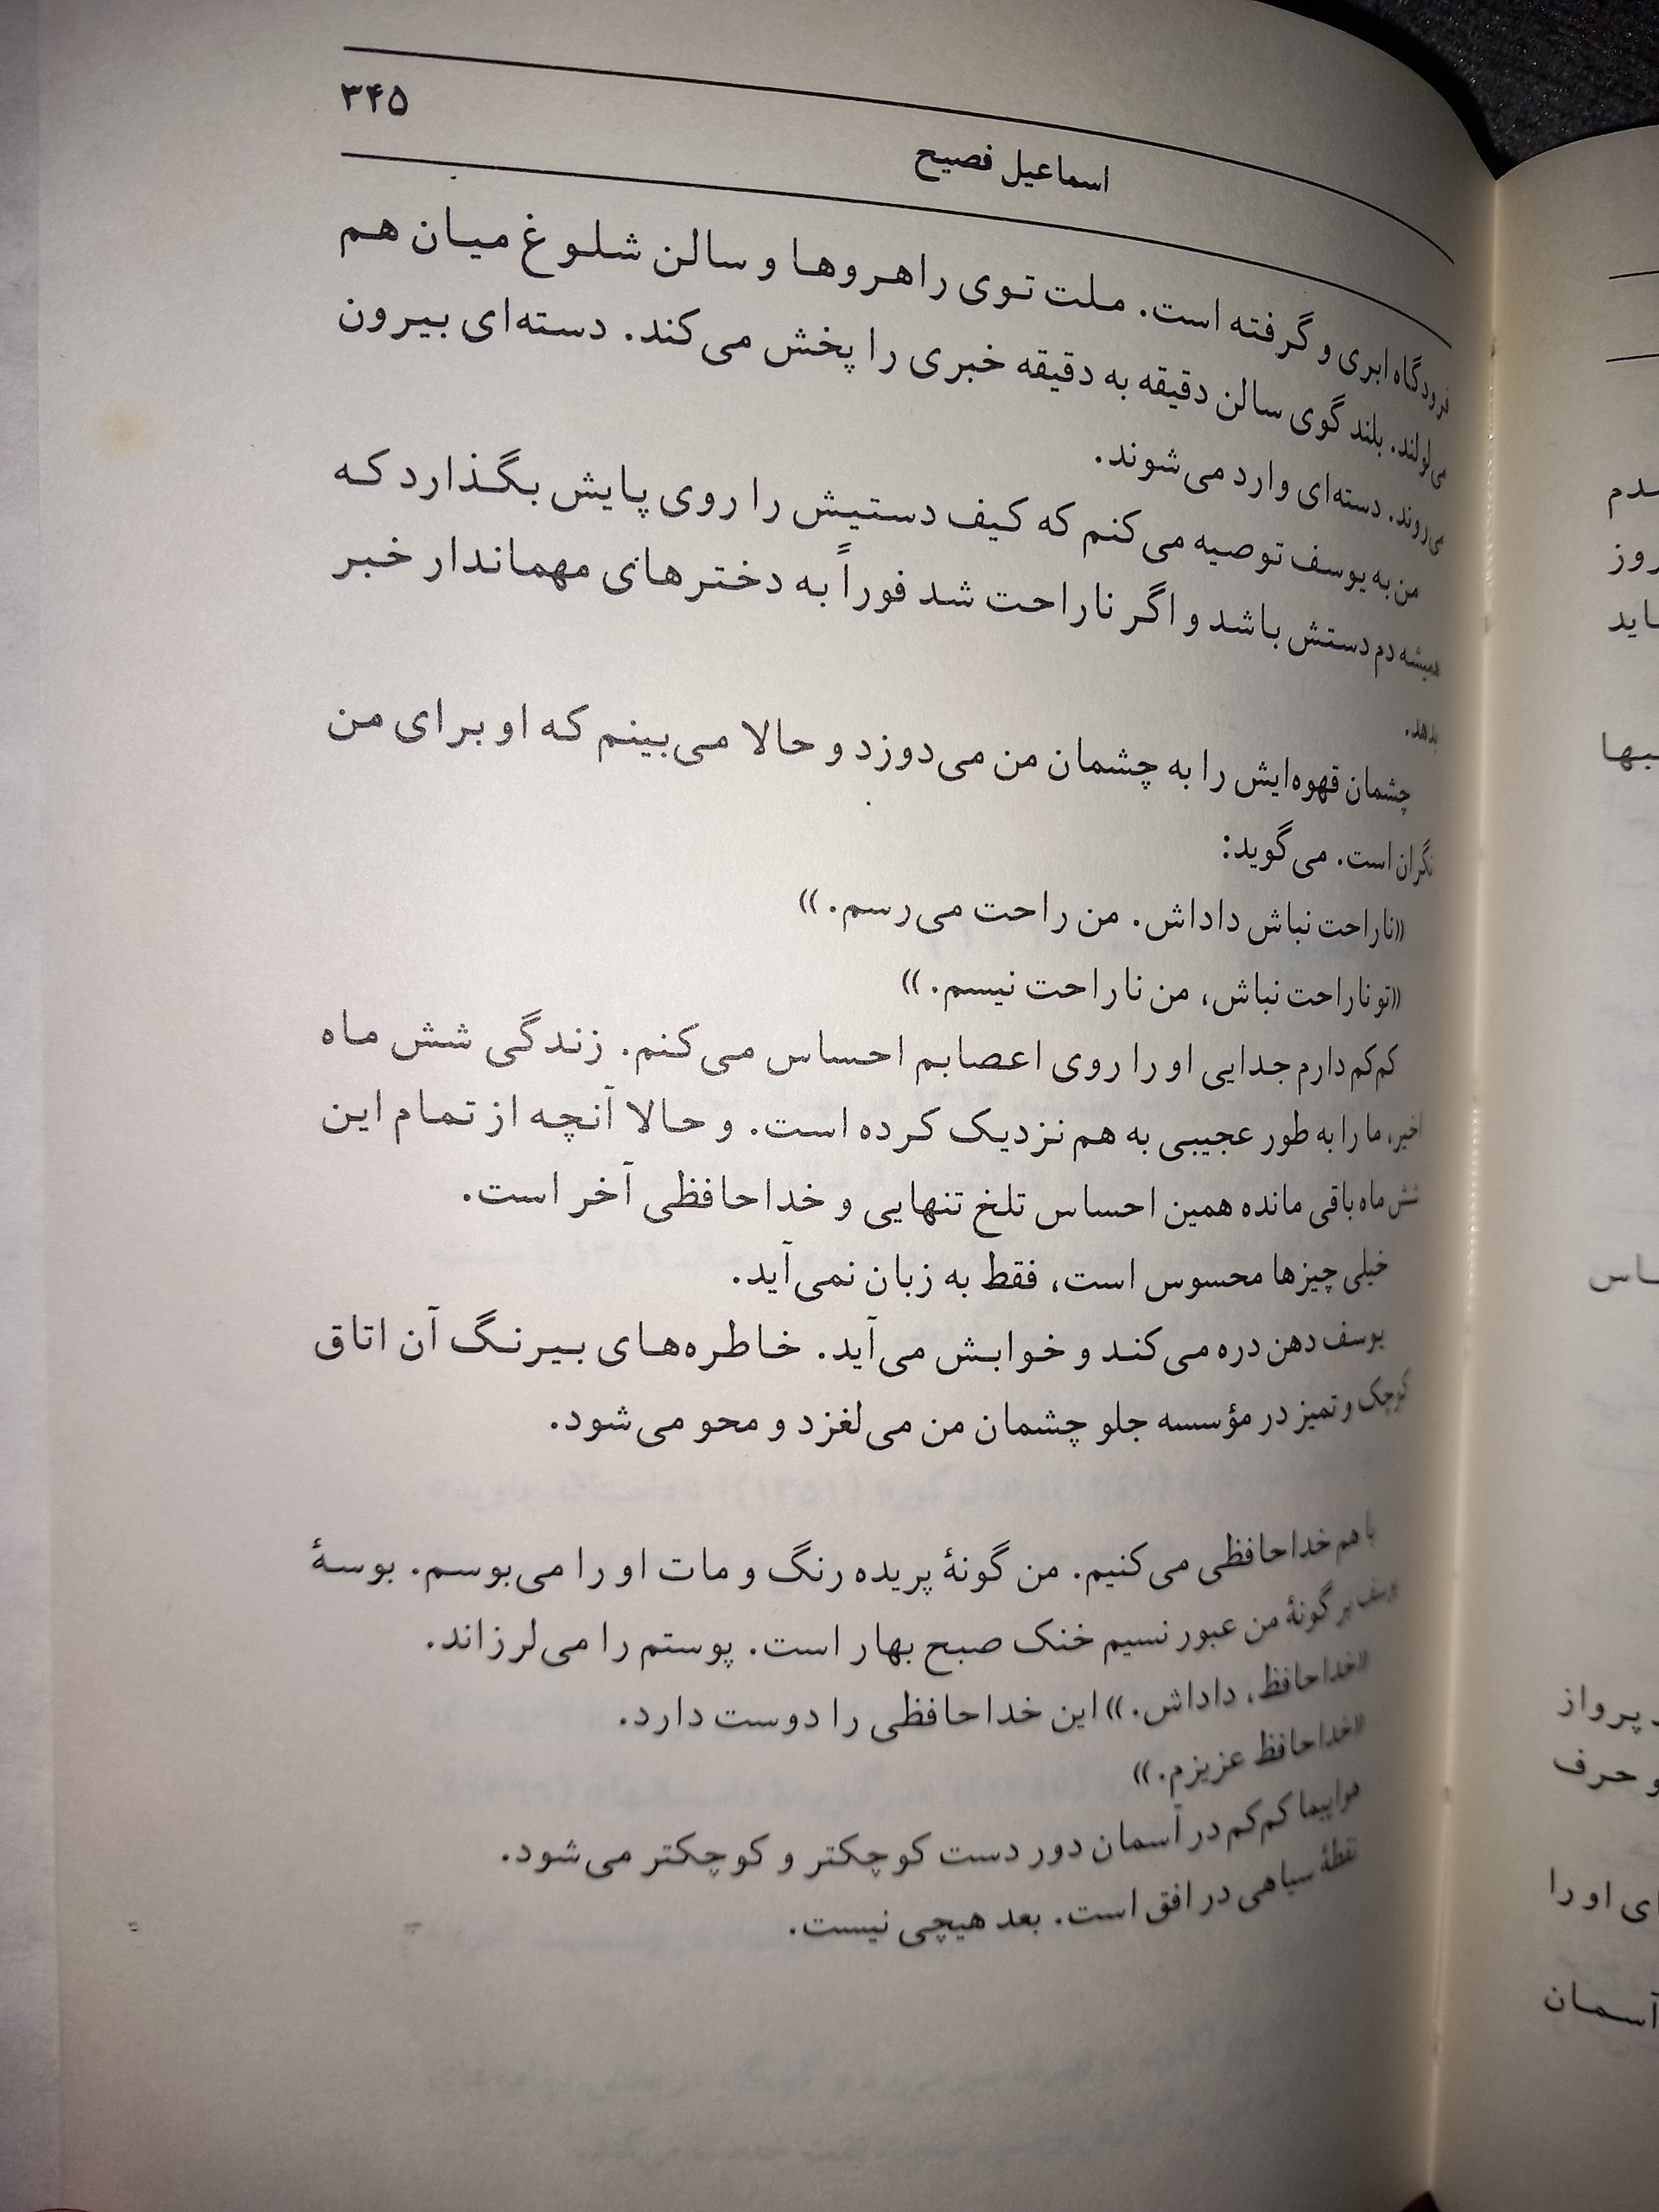 ۳۴۵
اسماعیل فصیح
فرودگاه ابری و گرفته است. ملت توی راهروها و سالن شلوغ میان هم
می‌لولند. بلندگوی سالن دقیقه به دقیقه خبری را پخش می‌کند. دسته‌ای بیرون
می‌روند. دسته‌ای وارد می‌شوند.
من به یوسف توصیه می‌کنم که کیف دستیش را روی پایش بگذارد که
همیشه دم دستش باشد و اگر ناراحت شد فوراً به دخترهای مهماندار خبر
بدهد.
چشمان قهوه‌ایش را به چشمان من می‌دوزد و حالا می‌بینم که او برای من
نگران است. می‌گوید:
«ناراحت نباش داداش. من راحت می‌رسم.»
«تو ناراحت نباش، من ناراحت نیسم.»
کم‌کم دارم جدایی او را روی اعصابم احساس می‌کنم. زندگی شش ماه
اخیر، ما را به طور عجیبی به هم نزدیک کرده است. و حالا آنچه از تمام این
شش ماه باقی مانده همین احساس تلخ تنهایی و خداحافظی آخر است.
خیلی چیزها محسوس است، فقط به زبان نمی‌آید.
یوسف دهن دره می‌کند و خوابش می‌آید. خاطره‌های بیرنگ آن اتاق
کوچک و تمیز در مؤسسه جلو چشمان من می‌لغزد و محو می‌شود.
با هم خداحافظی می‌کنیم. من گونهٔ پریده رنگ و مات او را می‌بوسم. بوسهٔ
یوسف بر گونهٔ من عبور نسیم خنک صبح بهار است. پوستم را می‌لرزاند.
«خداحافظ، داداش.» این خداحافظی را دوست دارد.
«خداحافظ عزیزم.»
هواپیما کم‌کم در آسمان دور دست کوچکتر و کوچکتر می‌شود.
نقطهٔ سیاهی در افق است. بعد هیچی نیست.
سدم
روز
ساید
اس
پرواز
و حرف
ای او را
آسمان